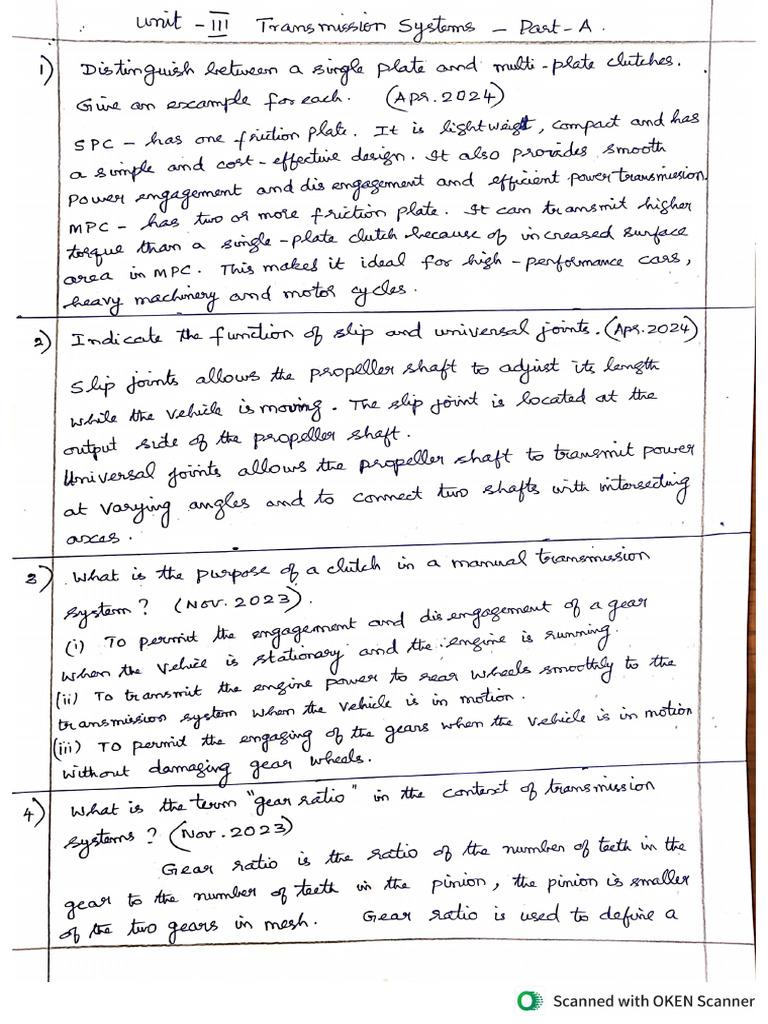 Unit - III Transmission Systems - Part-A.
1) Distinguish between a single plate and multi-plate clutches.
Give an example for each. (Apr. 2024)
SPC - has one friction plate. It is lightweight, compact and has
a simple and cost-effective design. It also provides smooth
power engagement and disengagement and efficient power transmission.
MPC - has two or more friction plate. It can transmit higher
torque than a single-plate clutch because of increased surface
area in MPC. This makes it ideal for high-performance cars,
heavy machinery and motor cycles.
2) Indicate the function of slip and universal joints. (Apr. 2024)
Slip joints allows the propeller shaft to adjust its length
while the vehicle is moving. The slip joint is located at the
output side of the propeller shaft.
Universal joints allows the propeller shaft to transmit power
at varying angles and to connect two shafts with intersecting
axes.
3) What is the purpose of a clutch in a manual transmission
system? (Nov. 2023).
(i) To permit the engagement and disengagement of a gear
when the vehice is stationary and the engine is running.
(ii) To transmit the engine power to rear wheels smoothly to the
transmission system when the vehicle is in motion.
(iii) To permit the engaging of the gears when the vehicle is in motion
without damaging gear wheels.
4) What is the term "gear ratio" in the context of transmission
systems? (Nov. 2023)
Gear ratio is the ratio of the number of teeth in the
gear to the number of teeth in the pinion, the pinion is smaller
of the two gears in mesh. Gear ratio is used to define a
Scanned with OKEN Scanner